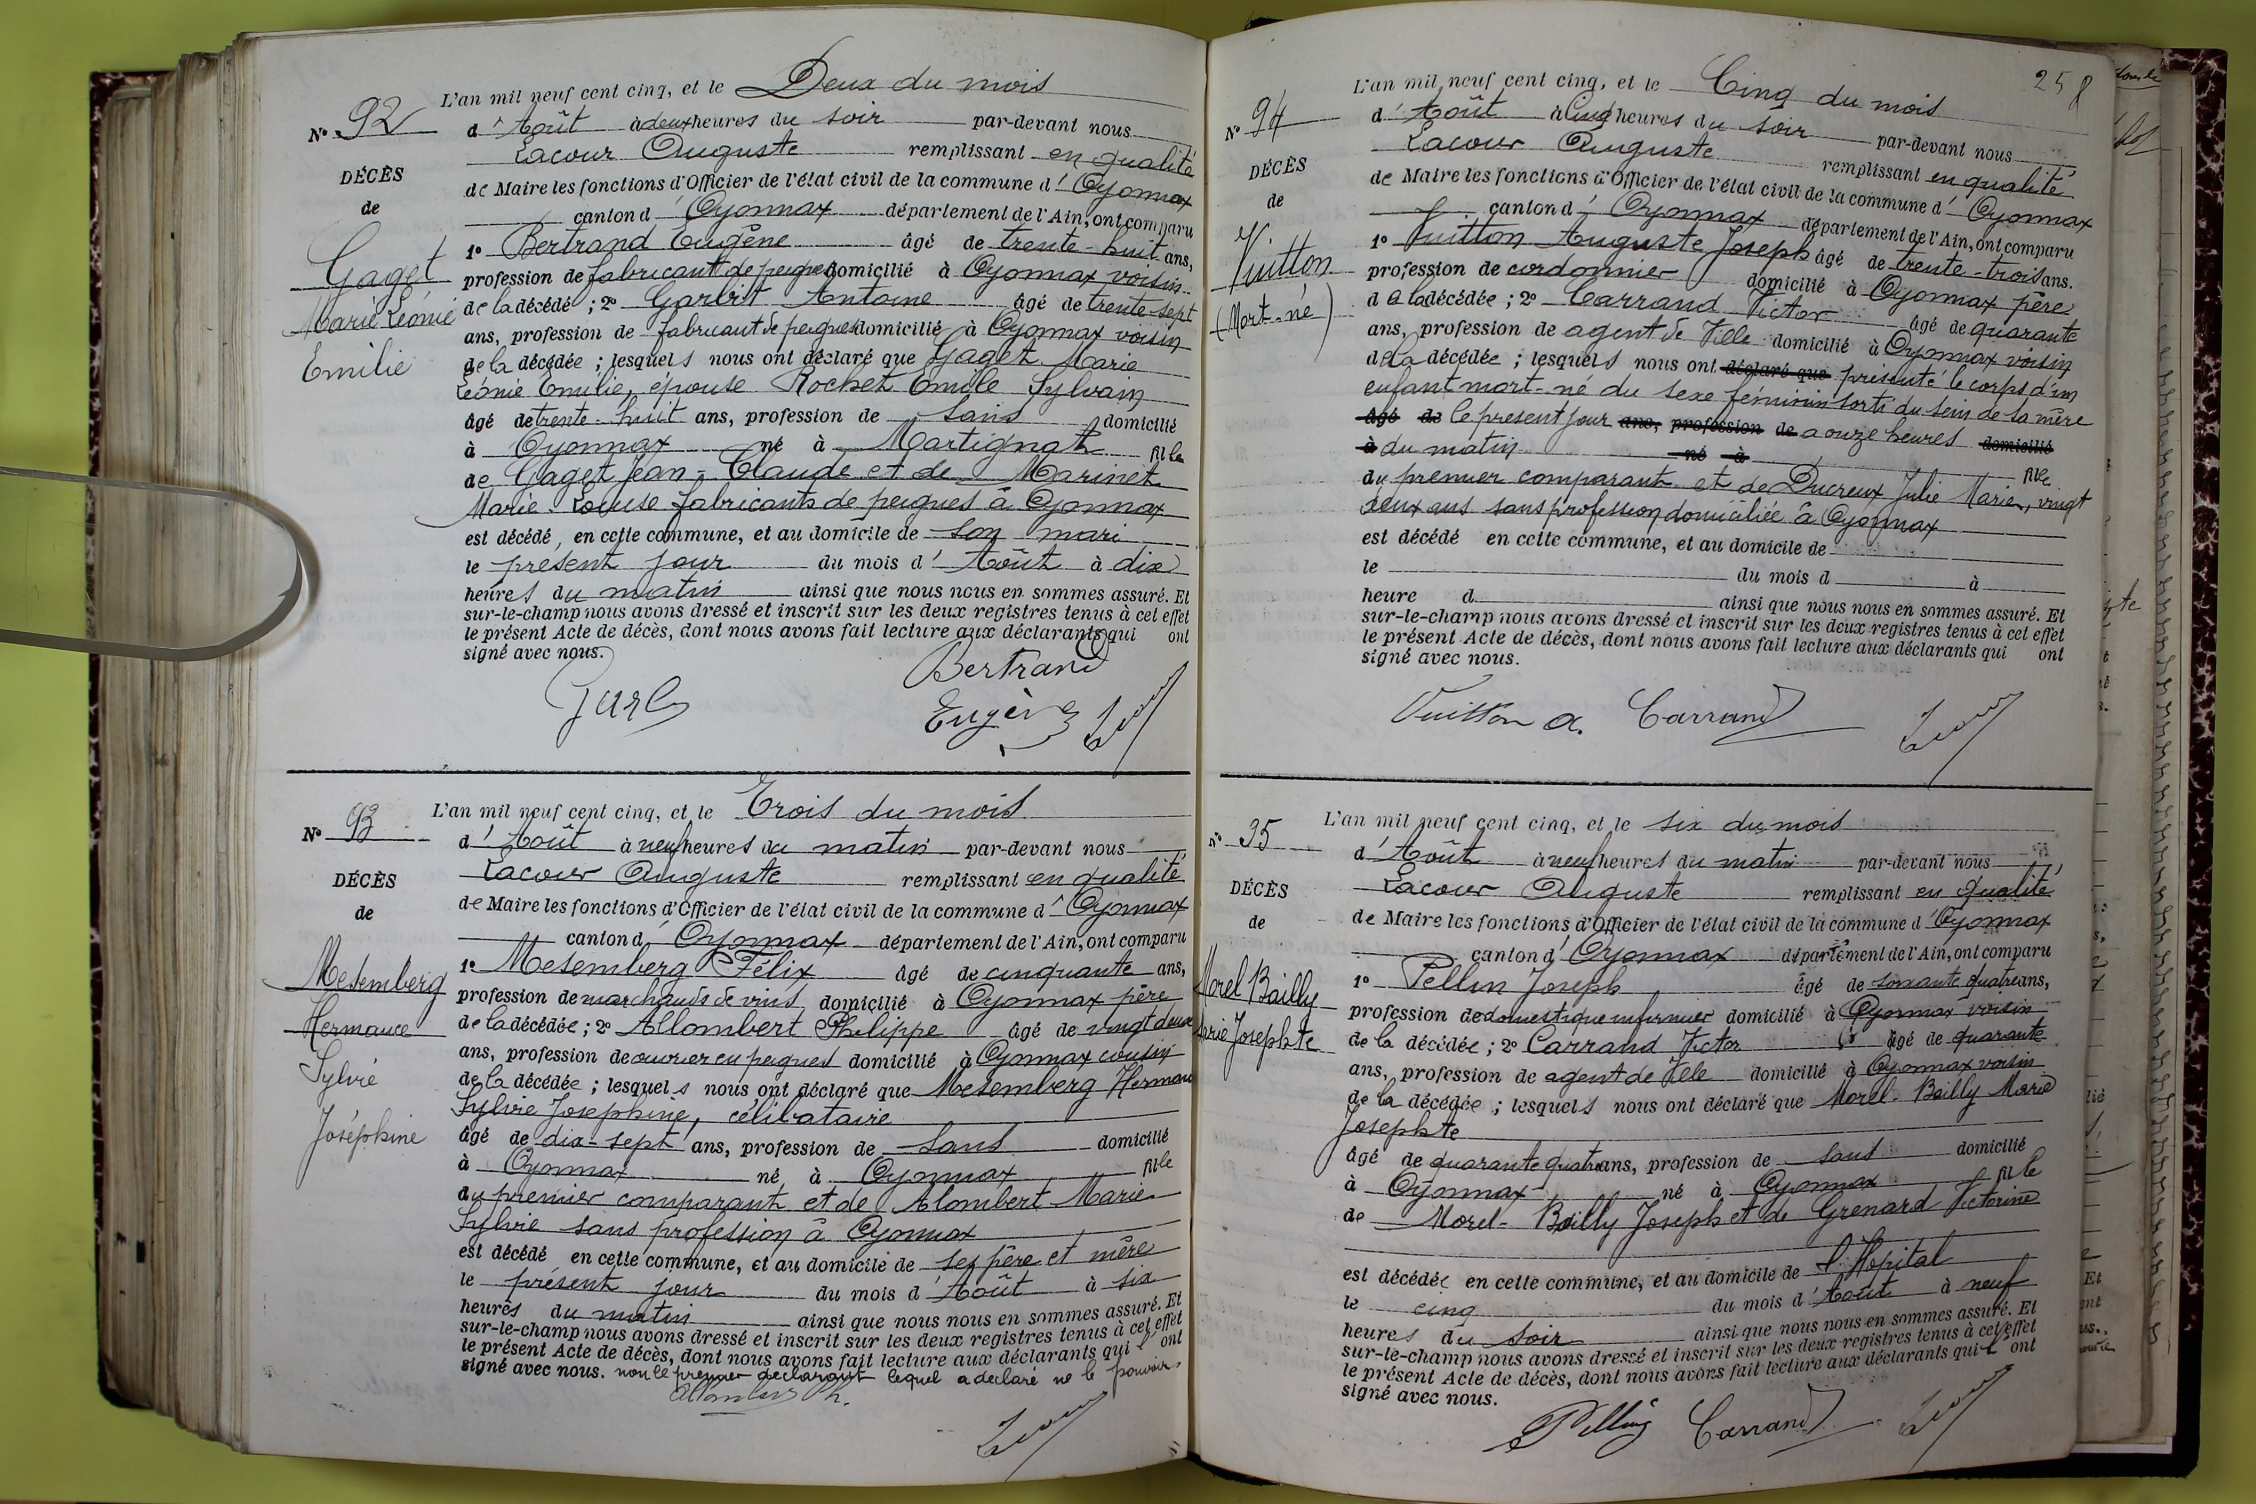 N° 92
DÉCÈS
de
Gaget
Marie Léonie
Emilie
L'an mil neuf cent cinq, et le Deux du mois
d'Août à deux heures du soir par-devant nous
Lacour Auguste remplissant en qualité
de Maire les fonctions d'Officier de l'état civil de la commune d'Oyonnax
canton d'Oyonnax département de l'Ain, ont comparu
1° Bertrand Eugène âgé de trente-huit ans,
profession de fabricant de peignes domicilié à Oyonnax voisin
de la décédé ; 2° Antoine âgé de trente-sept
ans, profession de fabricant de peignes domicilié à Oyonnax voisin
de la décédée ; lesquels nous ont déclaré que Gaget Marie
Léonie Emilie, épouse Rochet Emile Sylvain
âgé de trente-huit ans, profession de sans domicilié
à Oyonnax né à Martignat fille
de Gaget Jean-Claude et de Marinet
Marie-Louise fabricants de peignes à Oyonnax
est décédé, en cette commune, et au domicile de son mari
le présent jour du mois d'Août à dix
heures du matin ainsi que nous nous en sommes assuré. Et
sur-le-champ nous avons dressé et inscrit sur les deux registres tenus à cet effet
le présent Acte de décès, dont nous avons fait lecture aux déclarants qui ont
signé avec nous.
Bertrand
Eugène
N° 93
DÉCÈS
de
Mesemberg
Hermance
Sylvie
Joséphine
L'an mil neuf cent cinq, et le Trois du mois
d'Août à neuf heures du matin par-devant nous
Lacour Auguste remplissant en qualité
de Maire les fonctions d'Officier de l'état civil de la commune d'Oyonnax
canton d'Oyonnax département de l'Ain, ont comparu
1° Mesemberg Félix âgé de cinquante ans,
profession de marchands de vins domicilié à Oyonnax père
de la décédée ; 2° Allombert Philippe âgé de vingt deux
ans, profession de ouvrier en peignes domicilié à Oyonnax cousin
de la décédée ; lesquels nous ont déclaré que Mesemberg Hermance
Sylvie Josephine, célibataire
âgé de dix-sept ans, profession de sans domicilié
à Oyonnax né à Oyonnax fille
du premier comparant et de Alombert Marie
Sylvie sans profession à Oyonnax
est décédé en cette commune, et au domicile de ses père et mère
le présent jour du mois d'Août à six
heures du matin ainsi que nous nous en sommes assuré. Et
sur-le-champ nous avons dressé et inscrit sur les deux registres tenus à cet effet
le présent Acte de décès, dont nous avons fait lecture aux déclarants qui ont
signé avec nous. non le premier déclarant lequel a déclaré ne le pouvoir
258
N° 94
DÉCÈS
de
Vuitton
(Mort-né)
L'an mil neuf cent cinq, et le Cinq du mois
d'Août à Cinq heures du soir par-devant nous
Lacour Auguste remplissant en qualité
de Maire les fonctions d'Officier de l'état civil de la commune d'Oyonnax
canton d'Oyonnax département de l'Ain, ont comparu
1° Vuitton Auguste Joseph âgé de trente-trois ans.
profession de cordonnier domicilié à Oyonnax père
de la décédée ; 2° Carrand Victor âgé de quarante
ans, profession de agent de Ville domicilié à Oyonnax voisin
de la décédée ; lesquels nous ont déclaré que présenté le corps d'un
enfant mort-né du sexe féminin sorti du sein de sa mère
âgé de le présent jour ans, profession de à onze heures domicilié
à du matin né à fille
du premier comparant et de Ducreux Julie Marie, vingt
deux ans sans profession domiciliée à Oyonnax
est décédé en cette commune, et au domicile de
le du mois d à
heure d ainsi que nous nous en sommes assuré. Et
sur-le-champ nous avons dressé et inscrit sur les deux registres tenus à cet effet
le présent Acte de décès, dont nous avons fait lecture aux déclarants qui ont
signé avec nous.
Vuitton a. Carrand
N° 95
DÉCÈS
de
Morel Bailly
Marie Josephte
L'an mil neuf cent cinq, et le six du mois
d'Août à neuf heures du matin par-devant nous
Lacour Auguste remplissant en qualité
de Maire les fonctions d'Officier de l'état civil de la commune d'Oyonnax
canton d'Oyonnax département de l'Ain, ont comparu
1° Pellin Joseph âgé de soixante quatre ans,
profession de domestique infirmier domicilié à Oyonnax voisin
de la décédée ; 2° Carrand Victor âgé de quarante
ans, profession de agent de Ville domicilié à Oyonnax voisin
de la décédée ; lesquels nous ont déclaré que Morel-Bailly Marie
Josephte
âgé de quarante quatre ans, profession de sans domicilié
à Oyonnax né à Oyonnax fille
de Morel-Bailly Joseph et de Grenard Victorine
est décédée en cette commune, et au domicile de l'Hopital
le cinq du mois d'Août à neuf
heures du soir ainsi que nous nous en sommes assuré. Et
sur-le-champ nous avons dressé et inscrit sur les deux registres tenus à cet effet
le présent Acte de décès, dont nous avons fait lecture aux déclarants qui ont
signé avec nous.
Carrand